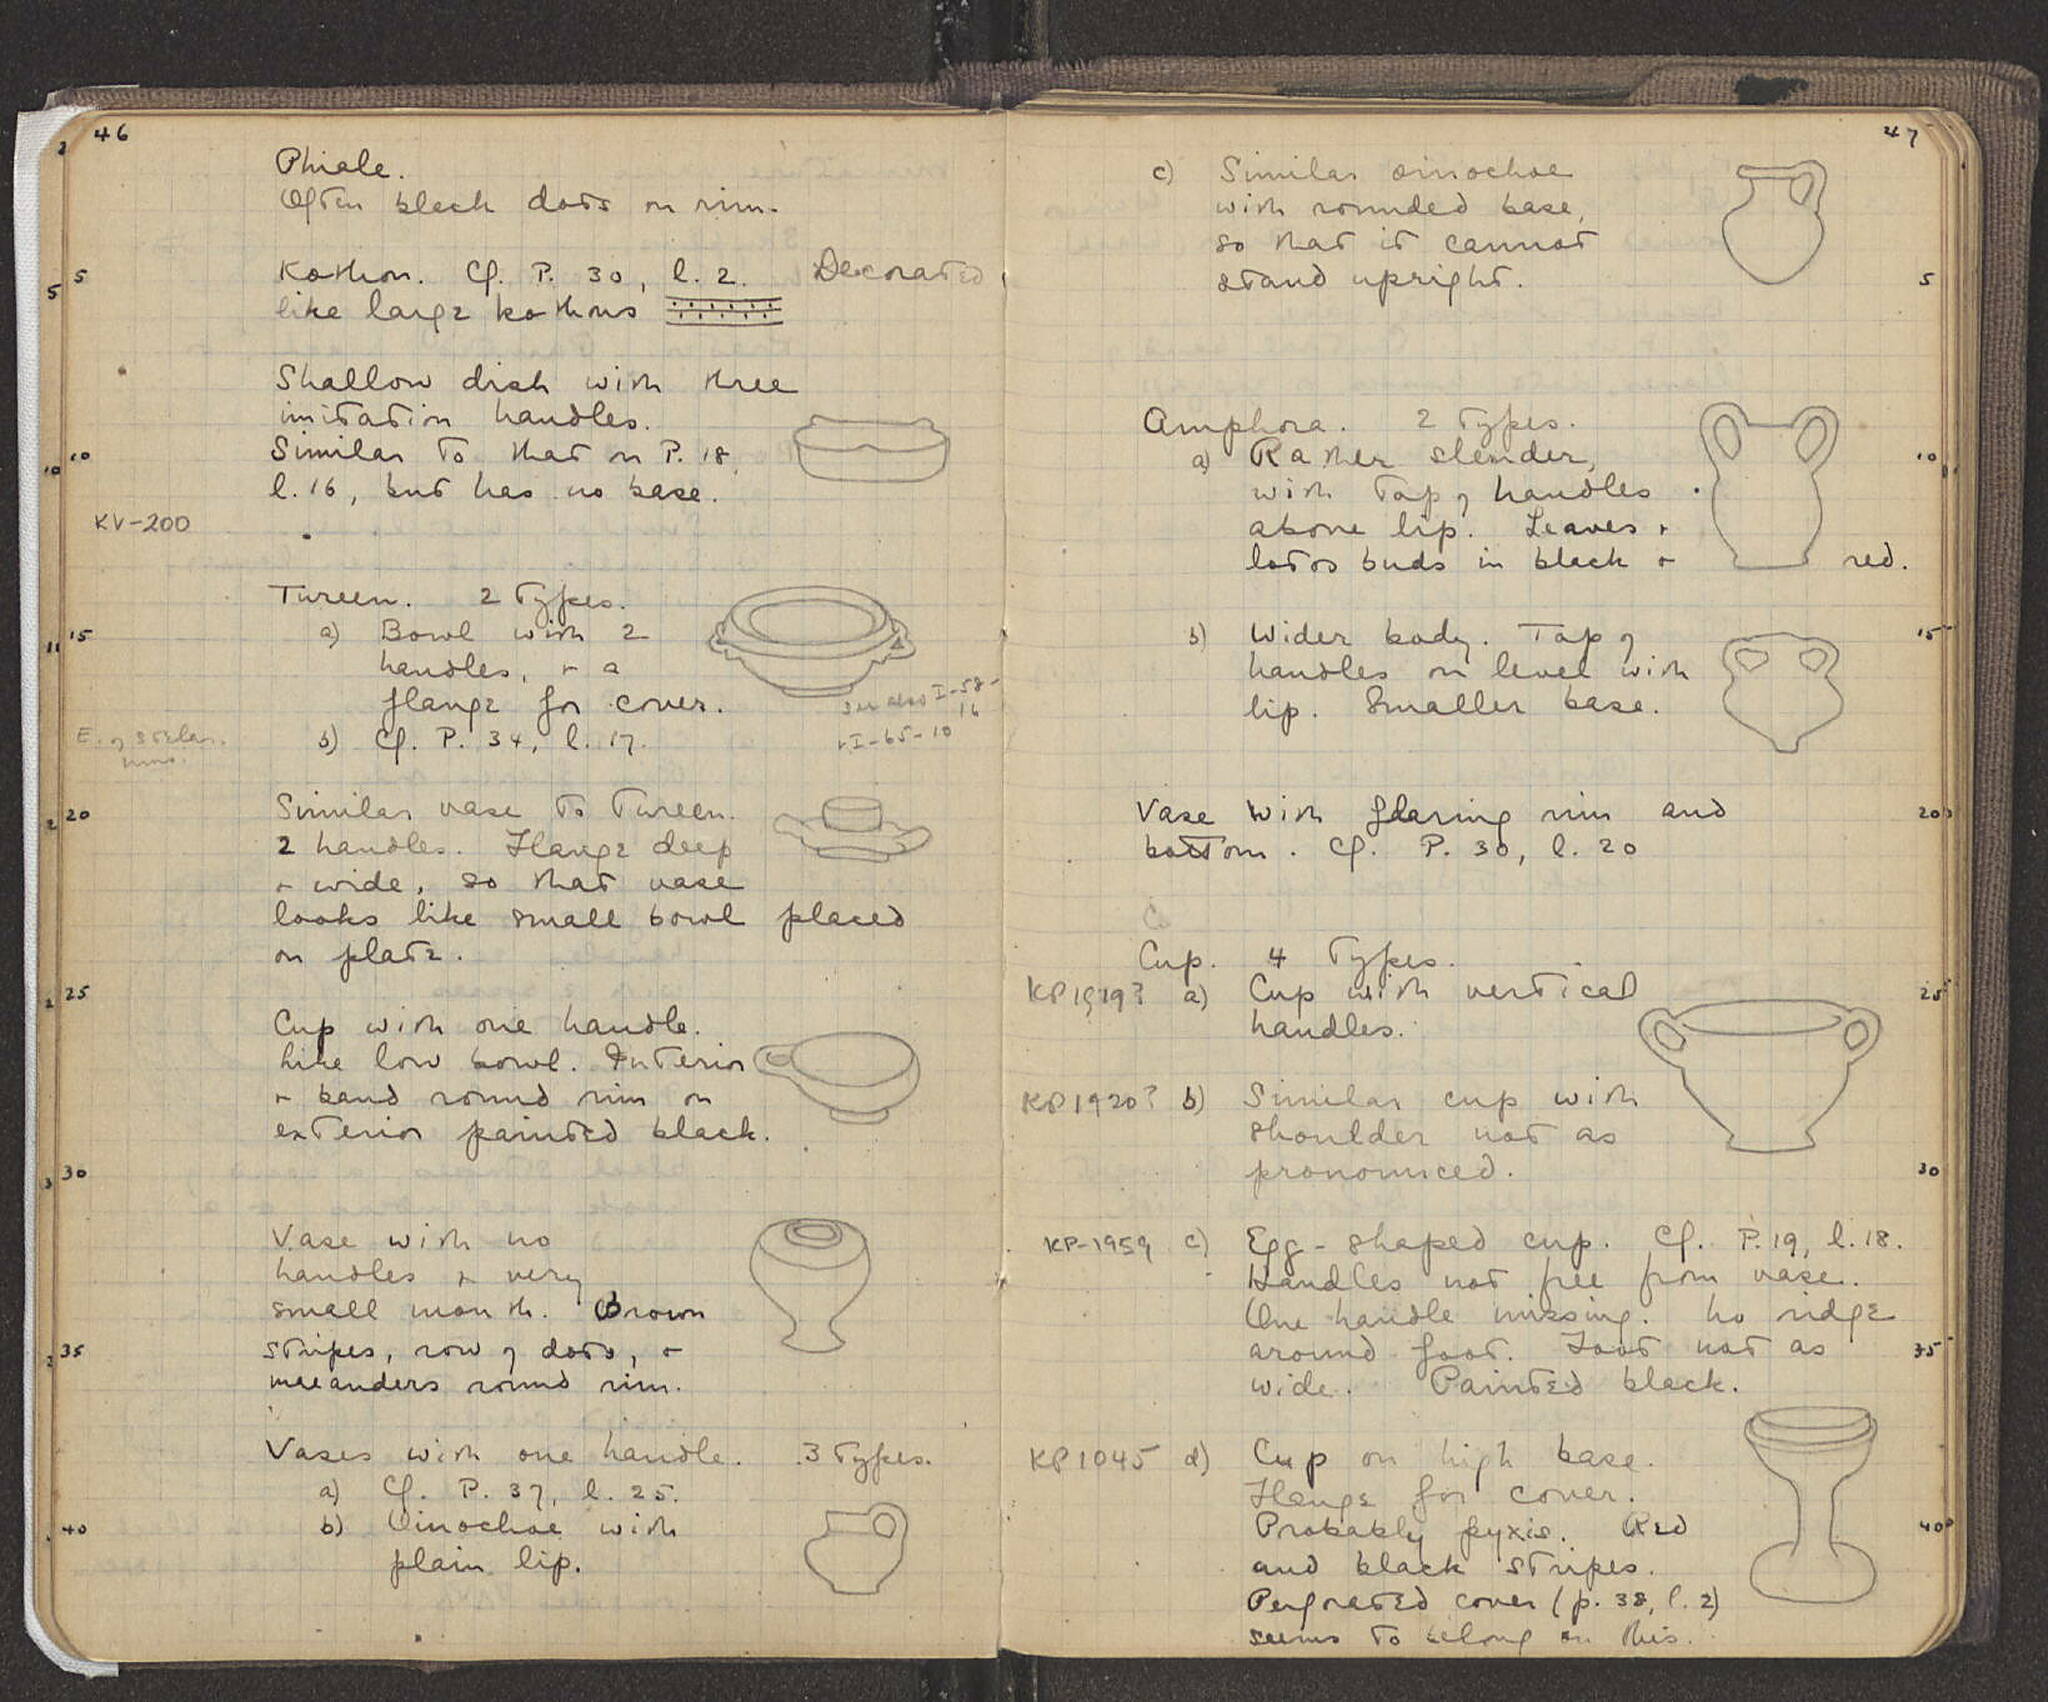 46
Phiale.
Often black dots on rim.
5
Kothon. Cf. P. 30, l. 2. Decorated
like large kothons
Shallow dish with three
imitation handles.
10
Similar to that on P. 18,
l. 16, but has no base.
KV-200
Tureen. 2 Types.
15
a) Bowl with 2
handles, + a
flange for cover.
see also I-58-
16
+ I-65-10
E. of Stelai
b) Cf. P. 34, l. 17.
20
Similar vase to Tureen.
2 handles. Flange deep
+ wide, so that vase
looks like small bowl placed
on plate.
25
Cup with one handle.
Like low bowl. Interior
+ band round rim on
exterior painted black.
30
Vase with no
handles + very
small mouth. Brown
35
stripes, row of dots, +
maeanders round rim.
Vases with one handle. 3 Types.
a) Cf. P. 37, l. 25.
40
b) Oinochoe with
plain lip.
47
c) Similar oinochoe
with rounded base,
so that it cannot
stand upright.
5
Amphora. 2 Types.
a) Rather slender,
10
with top of handles
above lip. Leaves +
lotos buds in black + red.
b) Wider body. Top of
15
handles on level with
lip. Smaller base.
Vase with flaring rim and
20
bottom. Cf. P. 30, l. 20
Cup. 4 Types.
KP1919? a) Cup with vertical
25
handles.
KP1920? b) Similar cup with
shoulder not as
pronounced.
30
KP-1959 c) Egg-shaped cup. Cf. P. 19, l. 18.
Handles not free from vase.
One handle missing. No ridge
around foot. Foot not as
35
wide. Painted black.
KP1045 d) Cup on high base.
Flange for cover.
Probably pyxis. Red
40
and black stripes.
Perforated cover (p. 38, l. 2)
seems to belong on this.